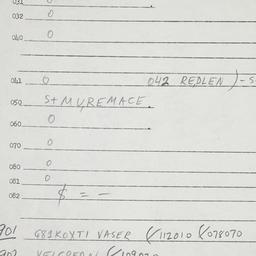 031 0
032 0
040 0
041 0 042 REDLEN)-S
050 S+MUREMACE.
060 0
070 0
080 0
081 0
082 $ = -
901 G81KOYTI VASER (112010 (078070